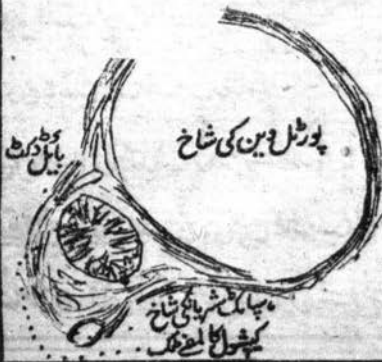 پورٹل وین کی شاخ
بائیل ڈکٹ
ہیپاٹک شریانکی شاخ
کیپسول کا